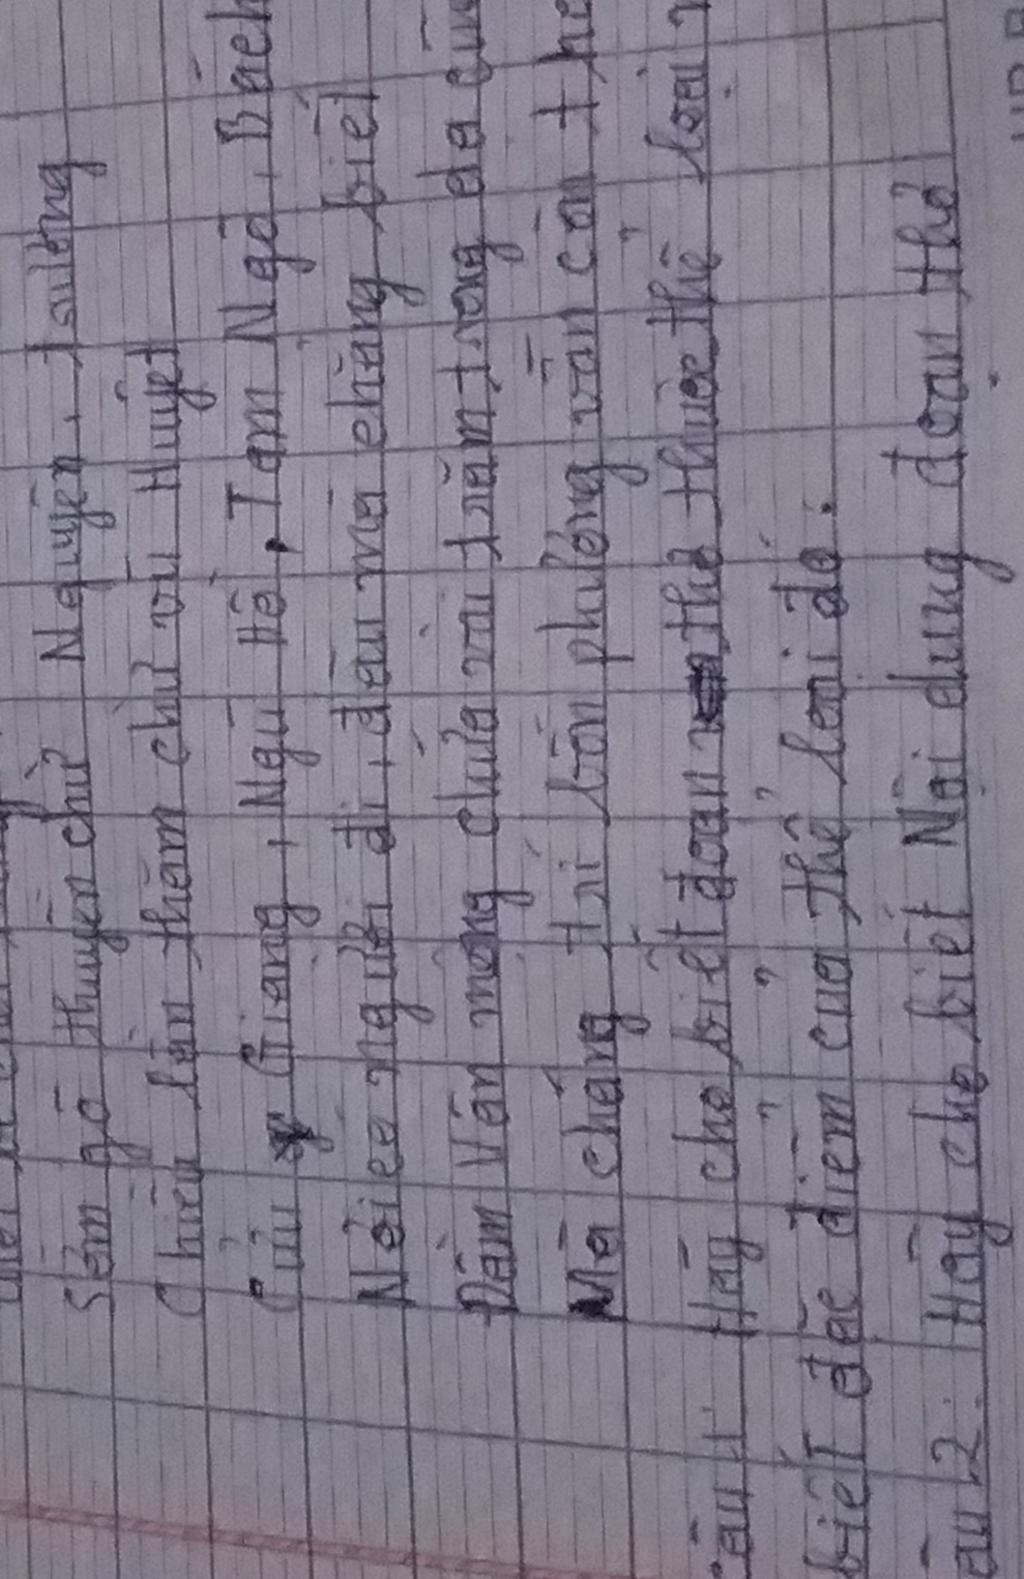 Sớm gõ thuyền chử Nguyên, Tương
Chiều lần thăm chử vũ Huyệt
Cửu Giang, Ngũ Hồ, Tam Ngô, Bách
Nơi có người đi, đâu mà chẳng biết
Đầm Vân mộng chứa vài trăm trong dạ cũng
Mà cháng trí bốn phương vẫn còn tha
Câu 1: Hãy cho biết đoạn thơ thuộc thể loại
biết đặc điểm của thể loại đó.
âu 2: Hãy cho biết Nội dung đoạn thơ